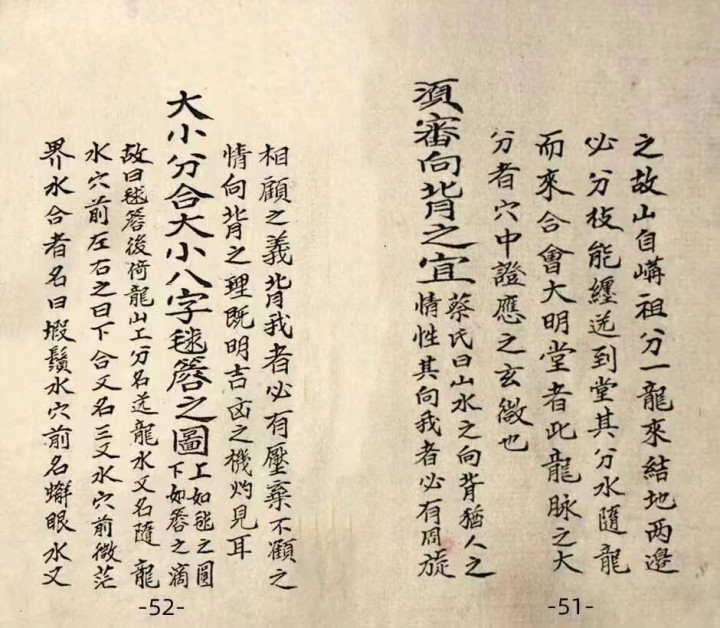 之故山自嵴祖分一龍來結地两邉
必分枝能纏送到堂其分水隨龍
而來合會大明堂者此龍脉之大
分者穴中證應之玄微也
須審向背之宜
蔡氏曰山水之向背猶人之
情性其向我者必有周旋
相顧之義背我者必有壓棄不顧之
情向背之理既明吉凶之機灼見耳
大小分合大小八字毬簷之圖
上如毬之圓
下如簷之滴
故曰毬簷後倚龍山工分名送龍水又名隨龍
水穴前左右之曰下合又名三叉水穴前微茫
界水合者名曰蝦鬚水穴前名蠏眼水又
-52-
-51-